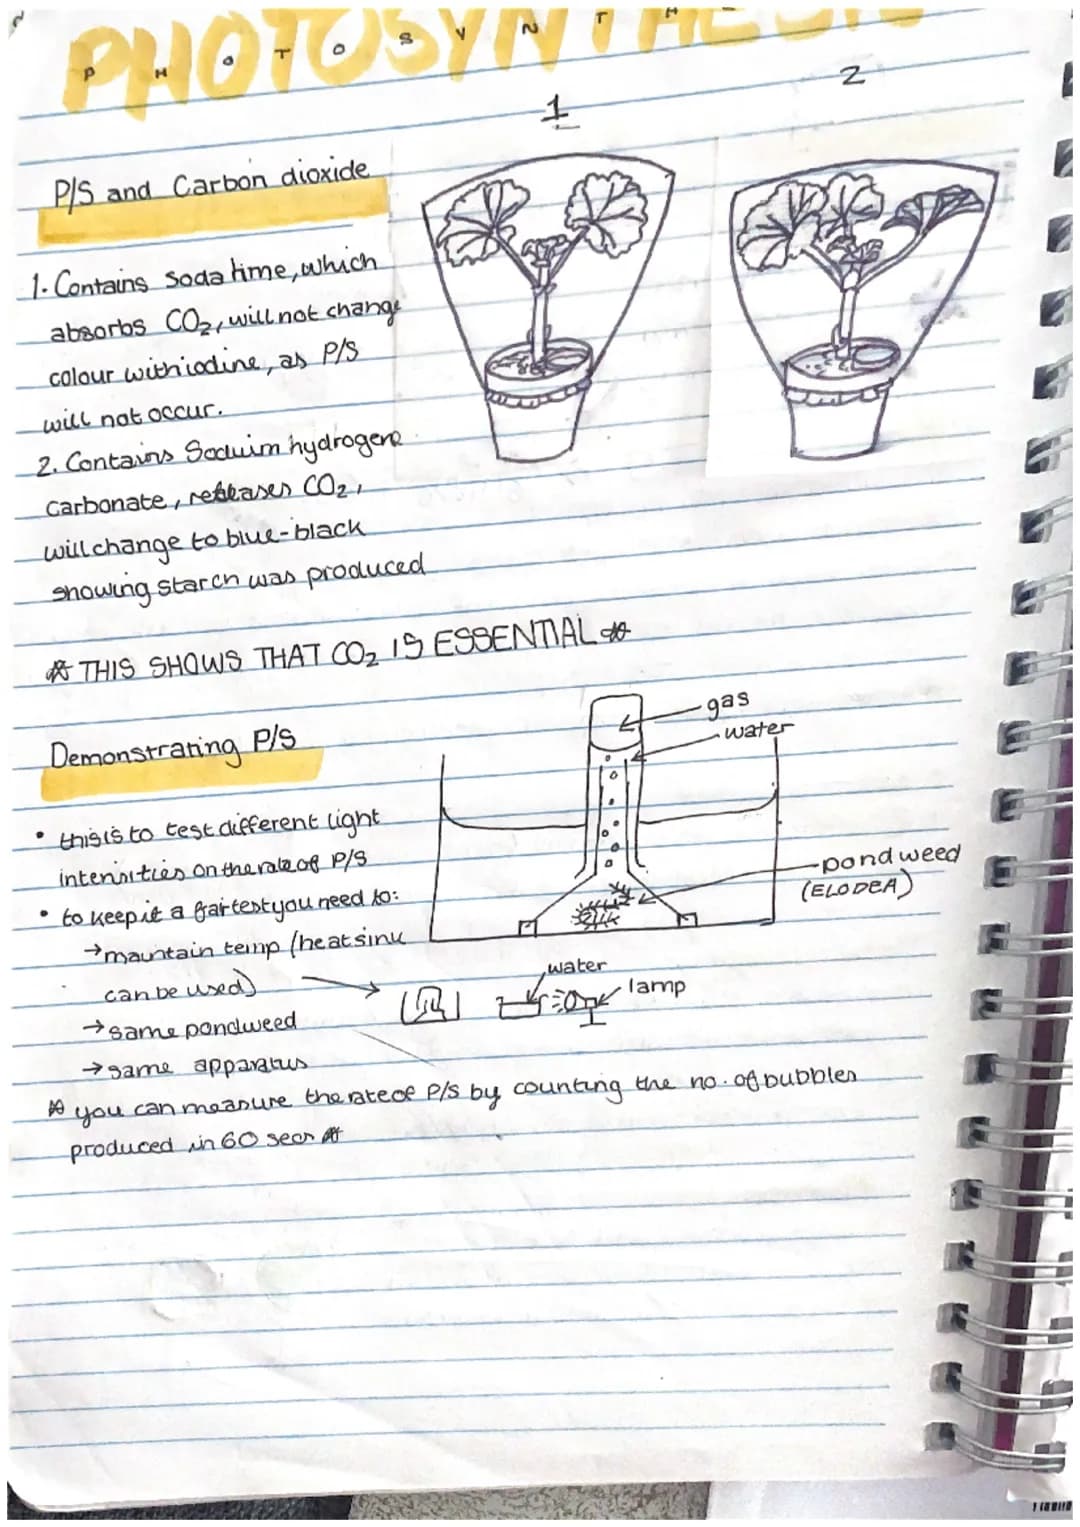 PHOTOSYNTHESIS
P H O T O S Y N T H
1
2
P/S and Carbon dioxide
1. Contains Soda lime, which
absorbs CO₂, will not change
colour with iodine, as P/S
will not occur.
2. Contains Soduim hydrogen
carbonate, releases CO₂,
will change to blue-black
showing starch was produced
☆ THIS SHOWS THAT CO₂ IS ESSENTIAL ☆
Demonstrating P/S
gas
water
• this is to test different light
intensities on the rate of P/S
pond weed
(ELODEA)
• to keep it a fair test you need to:
→ maintain temp (heat sink
can be used)
water
lamp
→ same pondweed
→ same apparatus
☆ you can measure the rate of P/S by counting the no. of bubbles
produced in 60 secs ☆